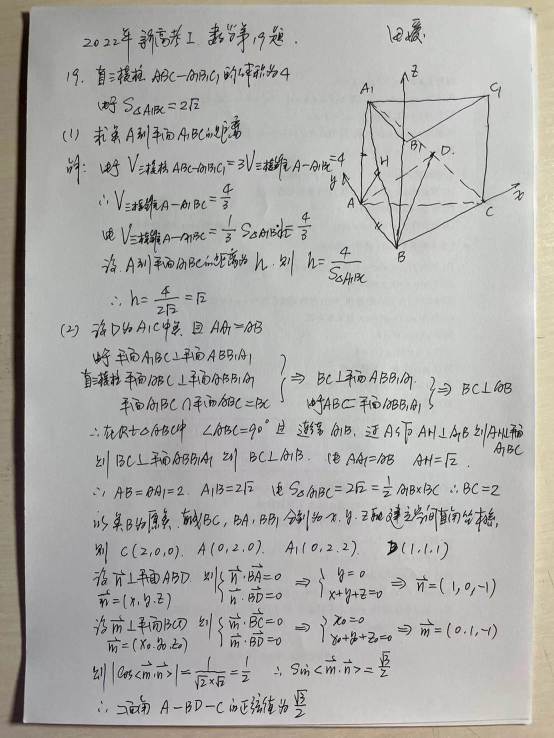 2022年 新高考I 数学第19题.
19. 直三棱柱 ABC-A₁B₁C₁ 的体积为4
S△A₁BC=2√2
(1) 求点A到平面A₁BC的距离
解: 由于 V三棱柱ABC-A₁B₁C₁=3V三棱锥A-A₁BC=4
∴ V三棱锥A-A₁BC=4/3
由 V三棱锥A-A₁BC=1/3 S△A₁BC·h=4/3
设 A到平面A₁BC的距离为 h. 则 h=4/S△A₁BC
∴ h=4/2√2=√2
(2) 设D为A₁C中点 且 AA₁=AB
由于 平面A₁BC⊥平面ABB₁A₁
直三棱柱 平面ABC⊥平面ABB₁A₁
平面A₁BC∩平面ABC=BC
⇒ BC⊥平面ABB₁A₁.
由于AB⊂平面ABB₁A₁
⇒ BC⊥AB
∴在Rt△ABC中 ∠ABC=90° 连结A₁B. 过A作 AH⊥A₁B 则AH⊥平面A₁BC
则 BC⊥平面ABB₁A₁ 则 BC⊥A₁B. 由 AA₁=AB AH=√2.
∴ AB=AA₁=2. A₁B=2√2 由 S△A₁BC=2√2=1/2 A₁B×BC ∴ BC=2
以点B为原点. BC, BA, BB₁ 分别为x. y. z轴建立空间直角坐标系.
则 C(2,0,0). A(0,2,0). A₁(0,2,2). D(1,1,1)
设n⃗⊥平面ABD. 则 { n⃗·BA⃗=0 ⇒ { y=0 ⇒ n⃗=(1,0,-1)
n⃗=(x,y,z) n⃗·BD⃗=0 x+y+z=0
设m⃗⊥平面BCD 则 { m⃗·BC⃗=0 ⇒ { x₀=0 ⇒ m⃗=(0,1,-1)
m⃗=(x₀,y₀,z₀) m⃗·BD⃗=0 x₀+y₀+z₀=0
则 |cos<m⃗·n⃗>|=1/√2×√2=1/2 ∴ Sin<m⃗·n⃗>=√3/2
∴ 二面角 A-BD-C的正弦值为√3/2
z
A₁
C₁
B₁
D.
H
y
A
C
x
B